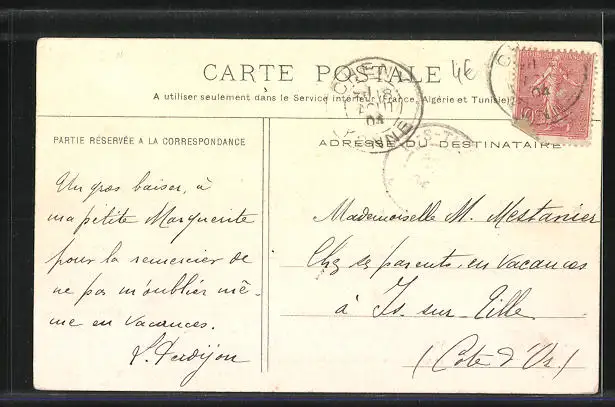 CARTE POSTALE
4€
A utiliser seulement dans le Service intérieur (France, Algérie et Tunisie)
PARTIE RÉSERVÉE A LA CORRESPONDANCE
ADRESSE DU DESTINATAIRE
Un gros baiser, à
ma petite Marguerite
pour la remercier de
ne pas m'oublier mê-
me en vacances.
Mademoiselle M. Mestanier
Chez ses parents, en vacances
à Is-sur-Tille
(Côte d'Or)
CAEN
04
IS-T
04